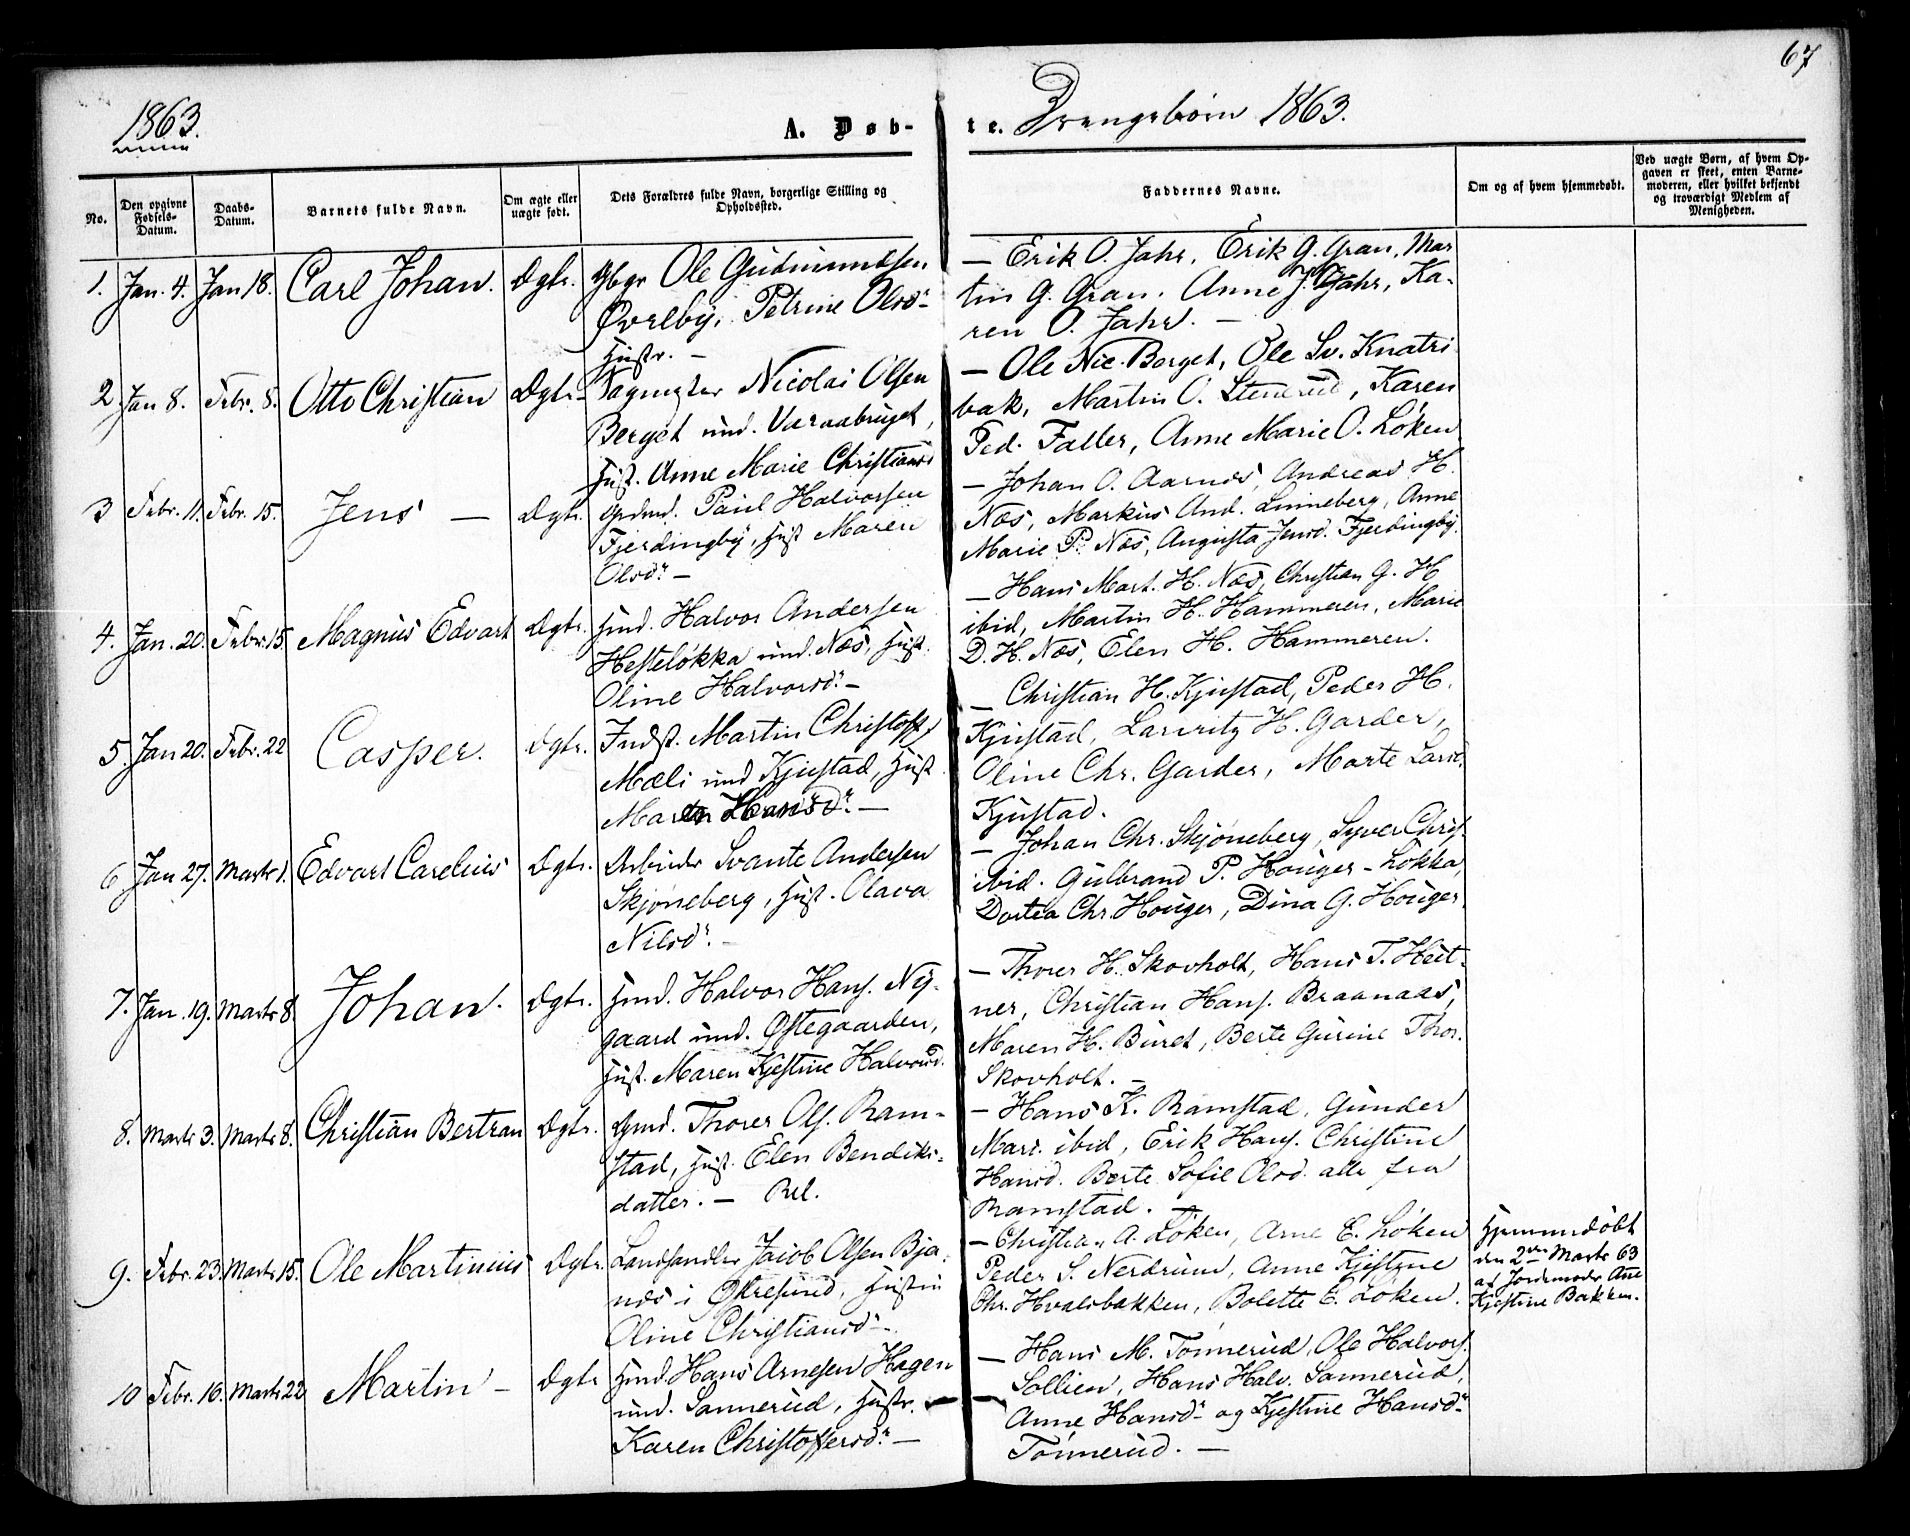 67
1863.
A. Døb-
te. Drengebørn 1863.
No.
Den opgivne Fødsels-Datum.
Daabs-Datum.
Barnets fulde Navn.
Om ægte eller uægte født.
Dets Forældres fulde Navn, borgerlige Stilling og Opholdssted.
Faddernes Navne.
Om og af hvem hjemmedøbt.
Ved uægte Børn, af hvem Opgaven er skeet, enten Barnemoderen, eller hvilket bekjendt og troværdigt Medlem af Menigheden.
1. Jan. 4. Jan 18. Carl Johan. Ægte.
Gbgr Ole Gudmundsen
Øvrelby, Petrine Olsdr
Hustr. —
— Erik O. Jahr, Erik G. Gran, Mar
tin G. Gran. Anne J. Jahr, Ka-
ren O. Jahr. —
2. Jan 8. Febr. 8. Otto Christian Ægte
Sagmester Nicolai Olsen
Berget und. Varaabruget,
Hust. Anne Marie Christiansd
— Ole Nic. Berget, Ole Sv. Knatri
bak, Martin O. Stenerud, Karen
Ped. Faller, Anne Marie O. Løken
3 Febr. 11. Febr. 15. Jens — Ægte.
Paul Halvorsen
Fjerdingby, Hust Maren
Olsdr. —
— Johan O. Aarnes, Andreas H.
Næs, Markus And. Linneberg, Anne
Marie P. Næs, Augusta Jensd. Fjerdingby.
4. Jan. 20. Febr. 15. Magnus Edvart Ægte.
Hmd. Halvor Andersen
Hesteløkka und. Næs, Hust.
Oline Halvorsdr. —
— Hans Mart. H. Næs, Christian G. H
ibid, Martin H. Hammeren, Marie
D. H. Næs, Elen H. Hammeren.
5. Jan 20. Febr. 22 Casper. Ægte.
Indst. Martin Christoff.
Mæli und Kjustad, Hust
Maren Hansdr. —
— Christian H. Kjustad, Peder H.
Kjustad, Lauritz H. Garder,
Oline Chr. Garder, Marte Lars.
Kjustad.
6 Jan 27. Marts 1. Edvart Carelius Ægte.
Arbeider Svante Andersen
Skjøneberg, Hust. Olava
Nilsdr. —
— Johan Chr. Skjøneberg, Syver Chris.
ibid. Gulbrand P. Houger-Løkka,
Dortea Chr. Houger, Dina G. Houger.
7. Jan. 19. Marts 8 Johan. Ægte.
Hmd. Halvor Hans. Ny-
gaard und. Østegaarden,
Hust. Maren Kjestine Halvorsd.
— Thorer H. Skovholt, Hans T. Heit-
ner, Christian Hans. Braanaas,
Maren H. Buret, Berte Gurine Thor.
Skovholt. —
8. Marts 3. Marts 8. Christian Bertran Ægte.
Gmd. Thorer Ols. Ram-
stad, Hust. Elen Bendiks-
datter. — Rel.
— Hans K. Ramstad, Gunder
Mari. ibid, Erik Hans. Christine
Hansd. Berte Sofie Olsd. alle fra
Ramstad. —
9. Febr. 23. Marts 15. Ole Martinius Ægte.
Landhandler Jacob Olsen Bja-
næs i Økresund, Hustru
Oline Christiansdr.
— Christian A. Løken, Arne E. Løken
Peder S. Nerdrum, Anne Kjestine
Chr. Hvalsbakken, Bolette E. Løken.
Hjemmedøbt
den 2den Marts 63
af Jordemoder Ane
Kjestine Bakken.
10 Febr. 16. Marts 22 Martin — Ægte
Hmd Hans Arnesen Hagen
und. Sannerud, Hustr. —
Karen Christoffersdr. —
— Hans M. Tønnerud, Ole Halvors.
Sollien, Hans Halv. Sannerud,
— Anne Hansdr og Kjestine Hansdr
Tønnerud. —